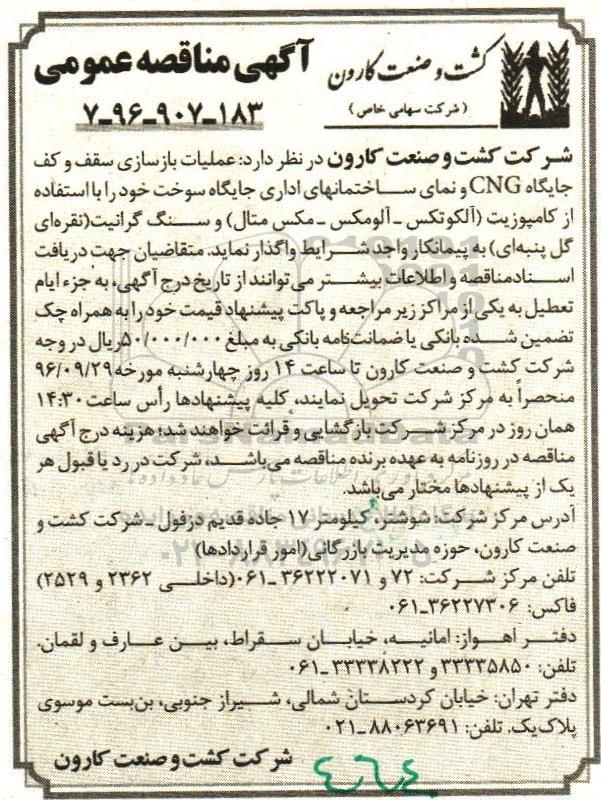 آگهی مناقصه عمومی
۷-۹۶-۹۰۷-۱۸۳
کشت و صنعت کارون
(شرکت سهامی خاص)
شرکت کشت و صنعت کارون در نظر دارد: عملیات بازسازی سقف و کف
جایگاه CNG و نمای ساختمانهای اداری جایگاه سوخت خود را با استفاده
از کامپوزیت (آلکوتکس - آلومکس - مکس متال) و سنگ گرانیت (نقره‌ای
گل پنبه‌ای) به پیمانکار واجد شرایط واگذار نماید. متقاضیان جهت دریافت
اسناد مناقصه و اطلاعات بیشتر می‌توانند از تاریخ درج آگهی، به جزء ایام
تعطیل به یکی از مراکز زیر مراجعه و پاکت پیشنهاد قیمت خود را به همراه چک
تضمین شده بانکی یا ضمانت‌نامه بانکی به مبلغ ۵۰/۰۰۰/۰۰۰ ریال در وجه
شرکت کشت و صنعت کارون تا ساعت ۱۴ روز چهارشنبه مورخه ۹۶/۰۹/۲۹
منحصراً به مرکز شرکت تحویل نمایند، کلیه پیشنهادها رأس ساعت ۱۴:۳۰
همان روز در مرکز شرکت بازگشایی و قرائت خواهند شد؛ هزینه درج آگهی
مناقصه در روزنامه به عهده برنده مناقصه می‌باشد، شرکت در رد یا قبول هر
یک از پیشنهادها مختار می‌باشد.
آدرس مرکز شرکت: شوشتر، کیلومتر ۱۷ جاده قدیم دزفول - شرکت کشت و
صنعت کارون، حوزه مدیریت بازرگانی (امور قراردادها)
تلفن مرکز شرکت: ۷۲ و ۳۶۲۲۲۰۷۱-۰۶۱ (داخلی ۲۳۶۲ و ۲۵۲۹)
فاکس: ۳۶۲۲۷۳۰۶-۰۶۱
دفتر اهواز: امانیه، خیابان سقراط، بین عارف و لقمان.
تلفن: ۳۳۳۳۵۸۵۰ و ۳۳۳۳۸۲۲۲-۰۶۱
دفتر تهران: خیابان کردستان شمالی، شیراز جنوبی، بن‌بست موسوی
پلاک یک. تلفن: ۸۸۰۶۳۶۹۱-۰۲۱
شرکت کشت و صنعت کارون